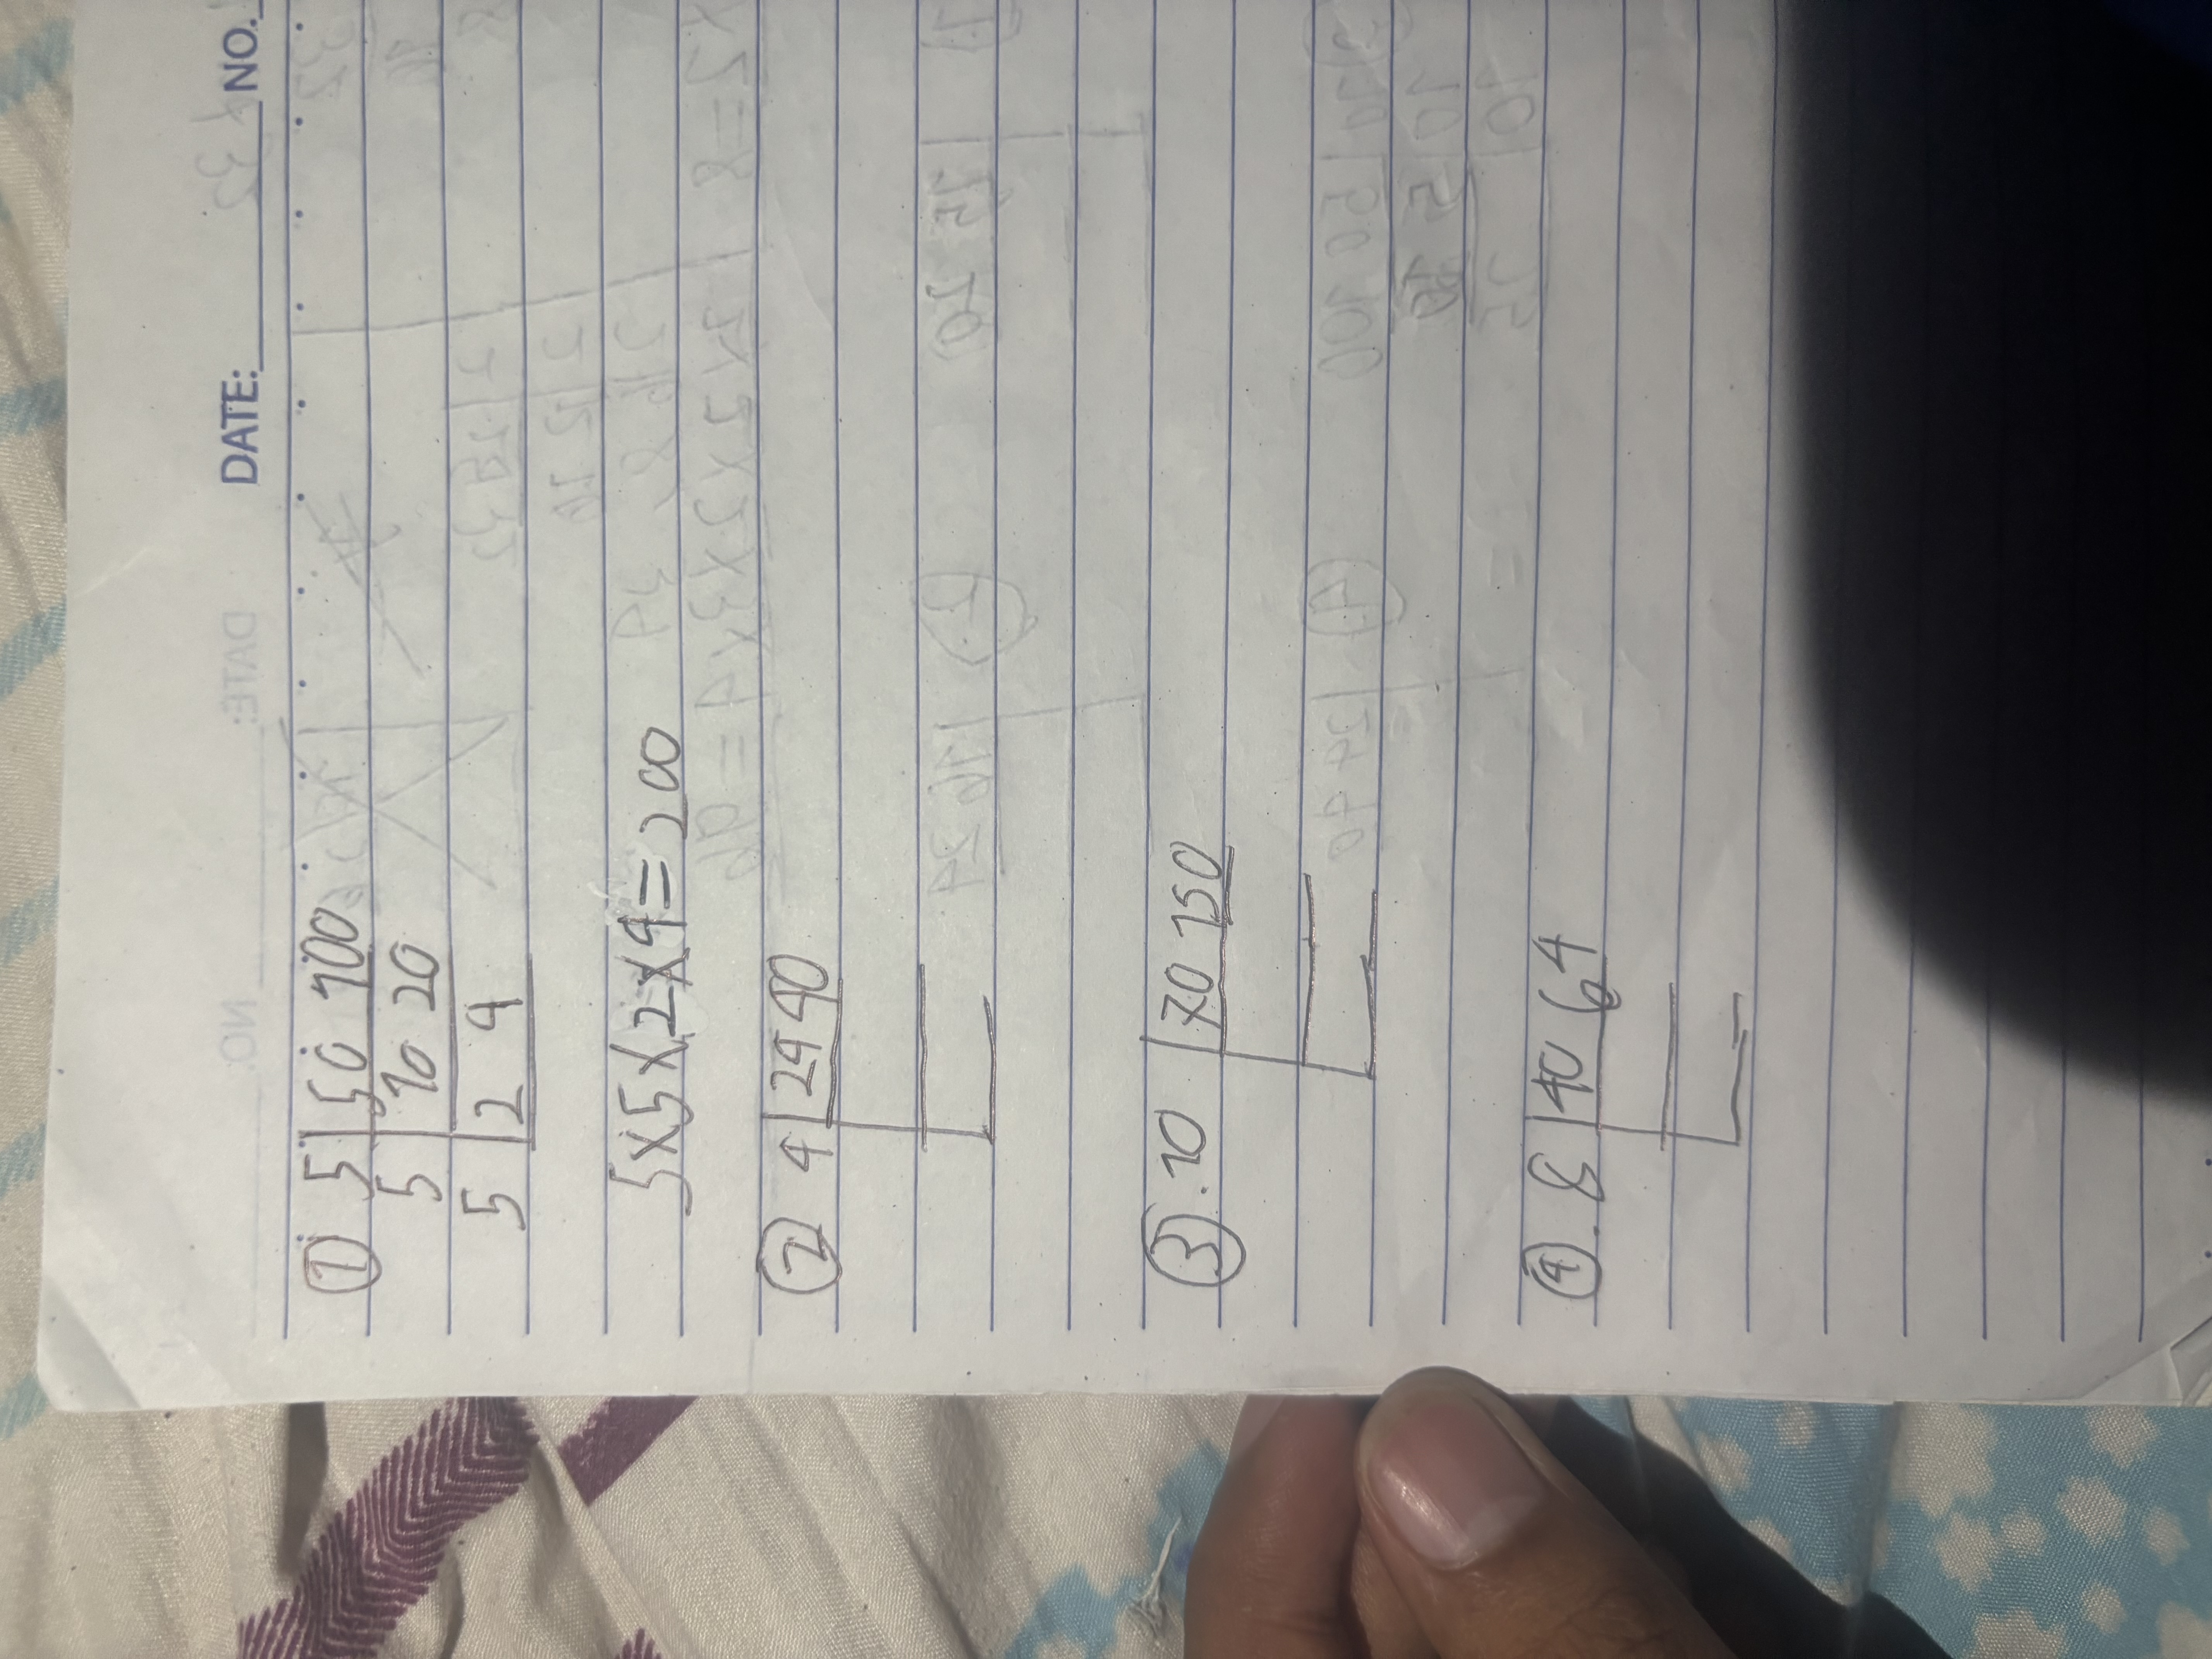 DATE: NO.
① 5 50 100
5 10 20
5 2 4
5×5×2×4=200
② 4 24 40
③. 10 70 150
④. 8 40 64